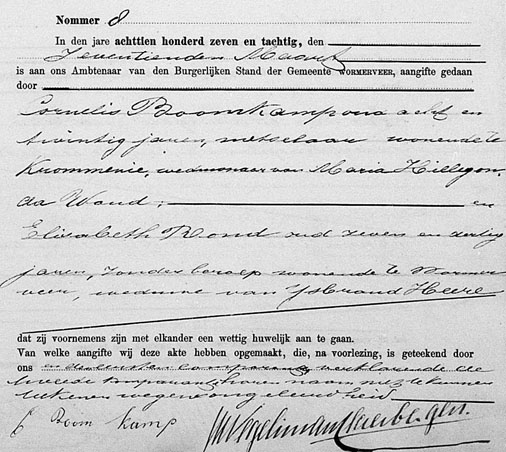 Nommer 8
In den jare achttien honderd zeven en tachtig, den
zeventienden Maart
is aan ons Ambtenaar van den Burgerlijken Stand der Gemeente WORMERVEER, aangifte gedaan
door
Cornelis Boomkamp oud acht en
twintig jaren, metselaar wonende te
Krommenie, weduwnaar van Maria Hillegon,
da Woud; en
Elisabeth Rond oud zeven en dertig
jaren, zonder beroep wonende te Wormer
veer, weduwe van IJsbrand Heere
dat zij voornemens zijn met elkander een wettig huwelijk aan te gaan.
Van welke aangifte wij deze akte hebben opgemaakt, die, na voorlezing, is geteekend door
ons en den eersten comparant verklarende de
tweede komparante haren naam niet te kunnen
teekenen wegens ongeleerdheid
C Boom kamp